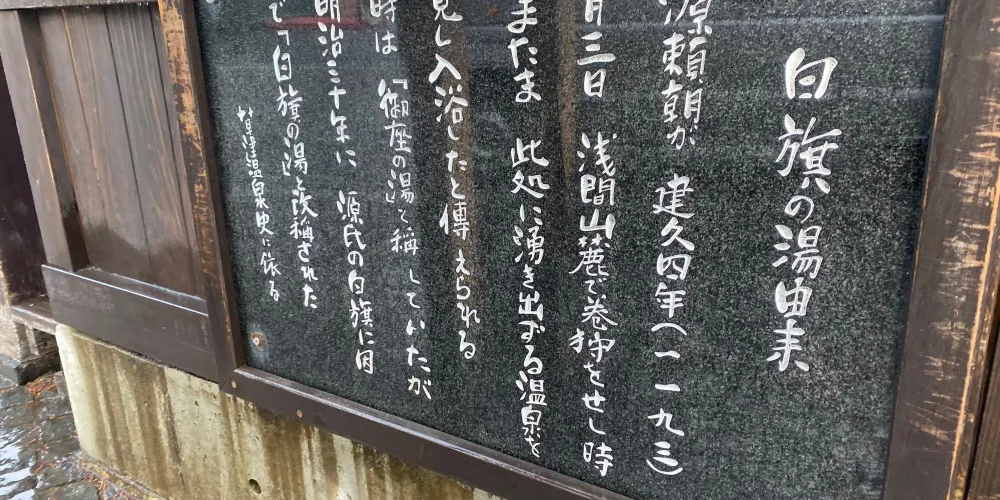 白旗の湯由来
源頼朝が 建久四年(一一九三)
月三日 浅間山麓で巻狩をせし時
またま 此処に湧き出ずる温泉を
見し入浴したと傳えられる
時は「御座の湯」と稱していたが
明治三十年に 源氏の白旗に因
で「白旗の湯」と改稱された
草津温泉史に依る